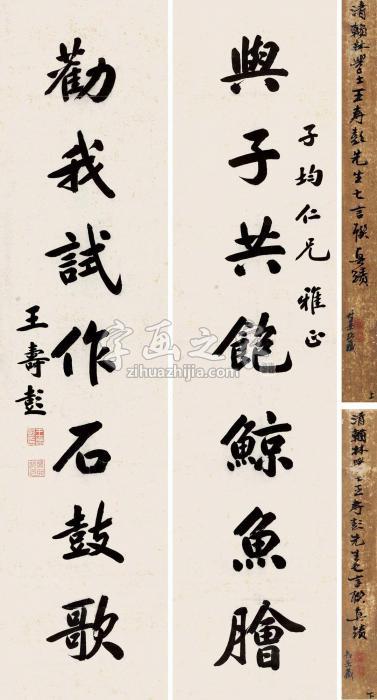 清翰林學士王壽彭先生七言聯真蹟
上
子均仁兄雅正
與子共飽鯨魚膾
勸我試作石鼓歌
王壽彭
清翰林學士王壽彭先生七言聯真蹟
下
字画之家
zihuazhijia.com